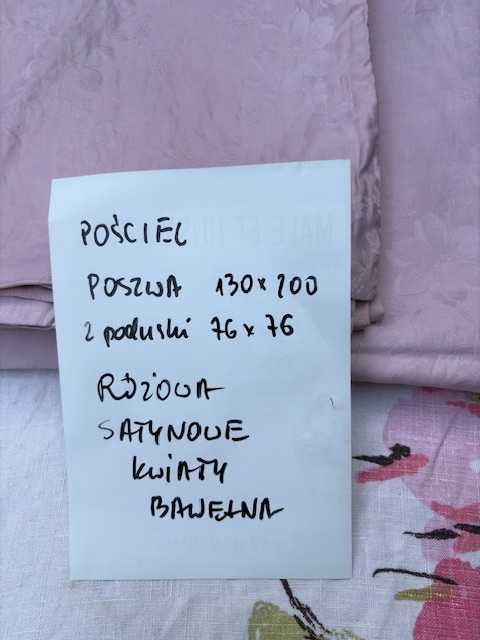 POŚCIEL
POSZWA 130x200
2 poduski 76x76
RÓŻOWA
SATYNOWE
KWIATY
BAWEŁNA